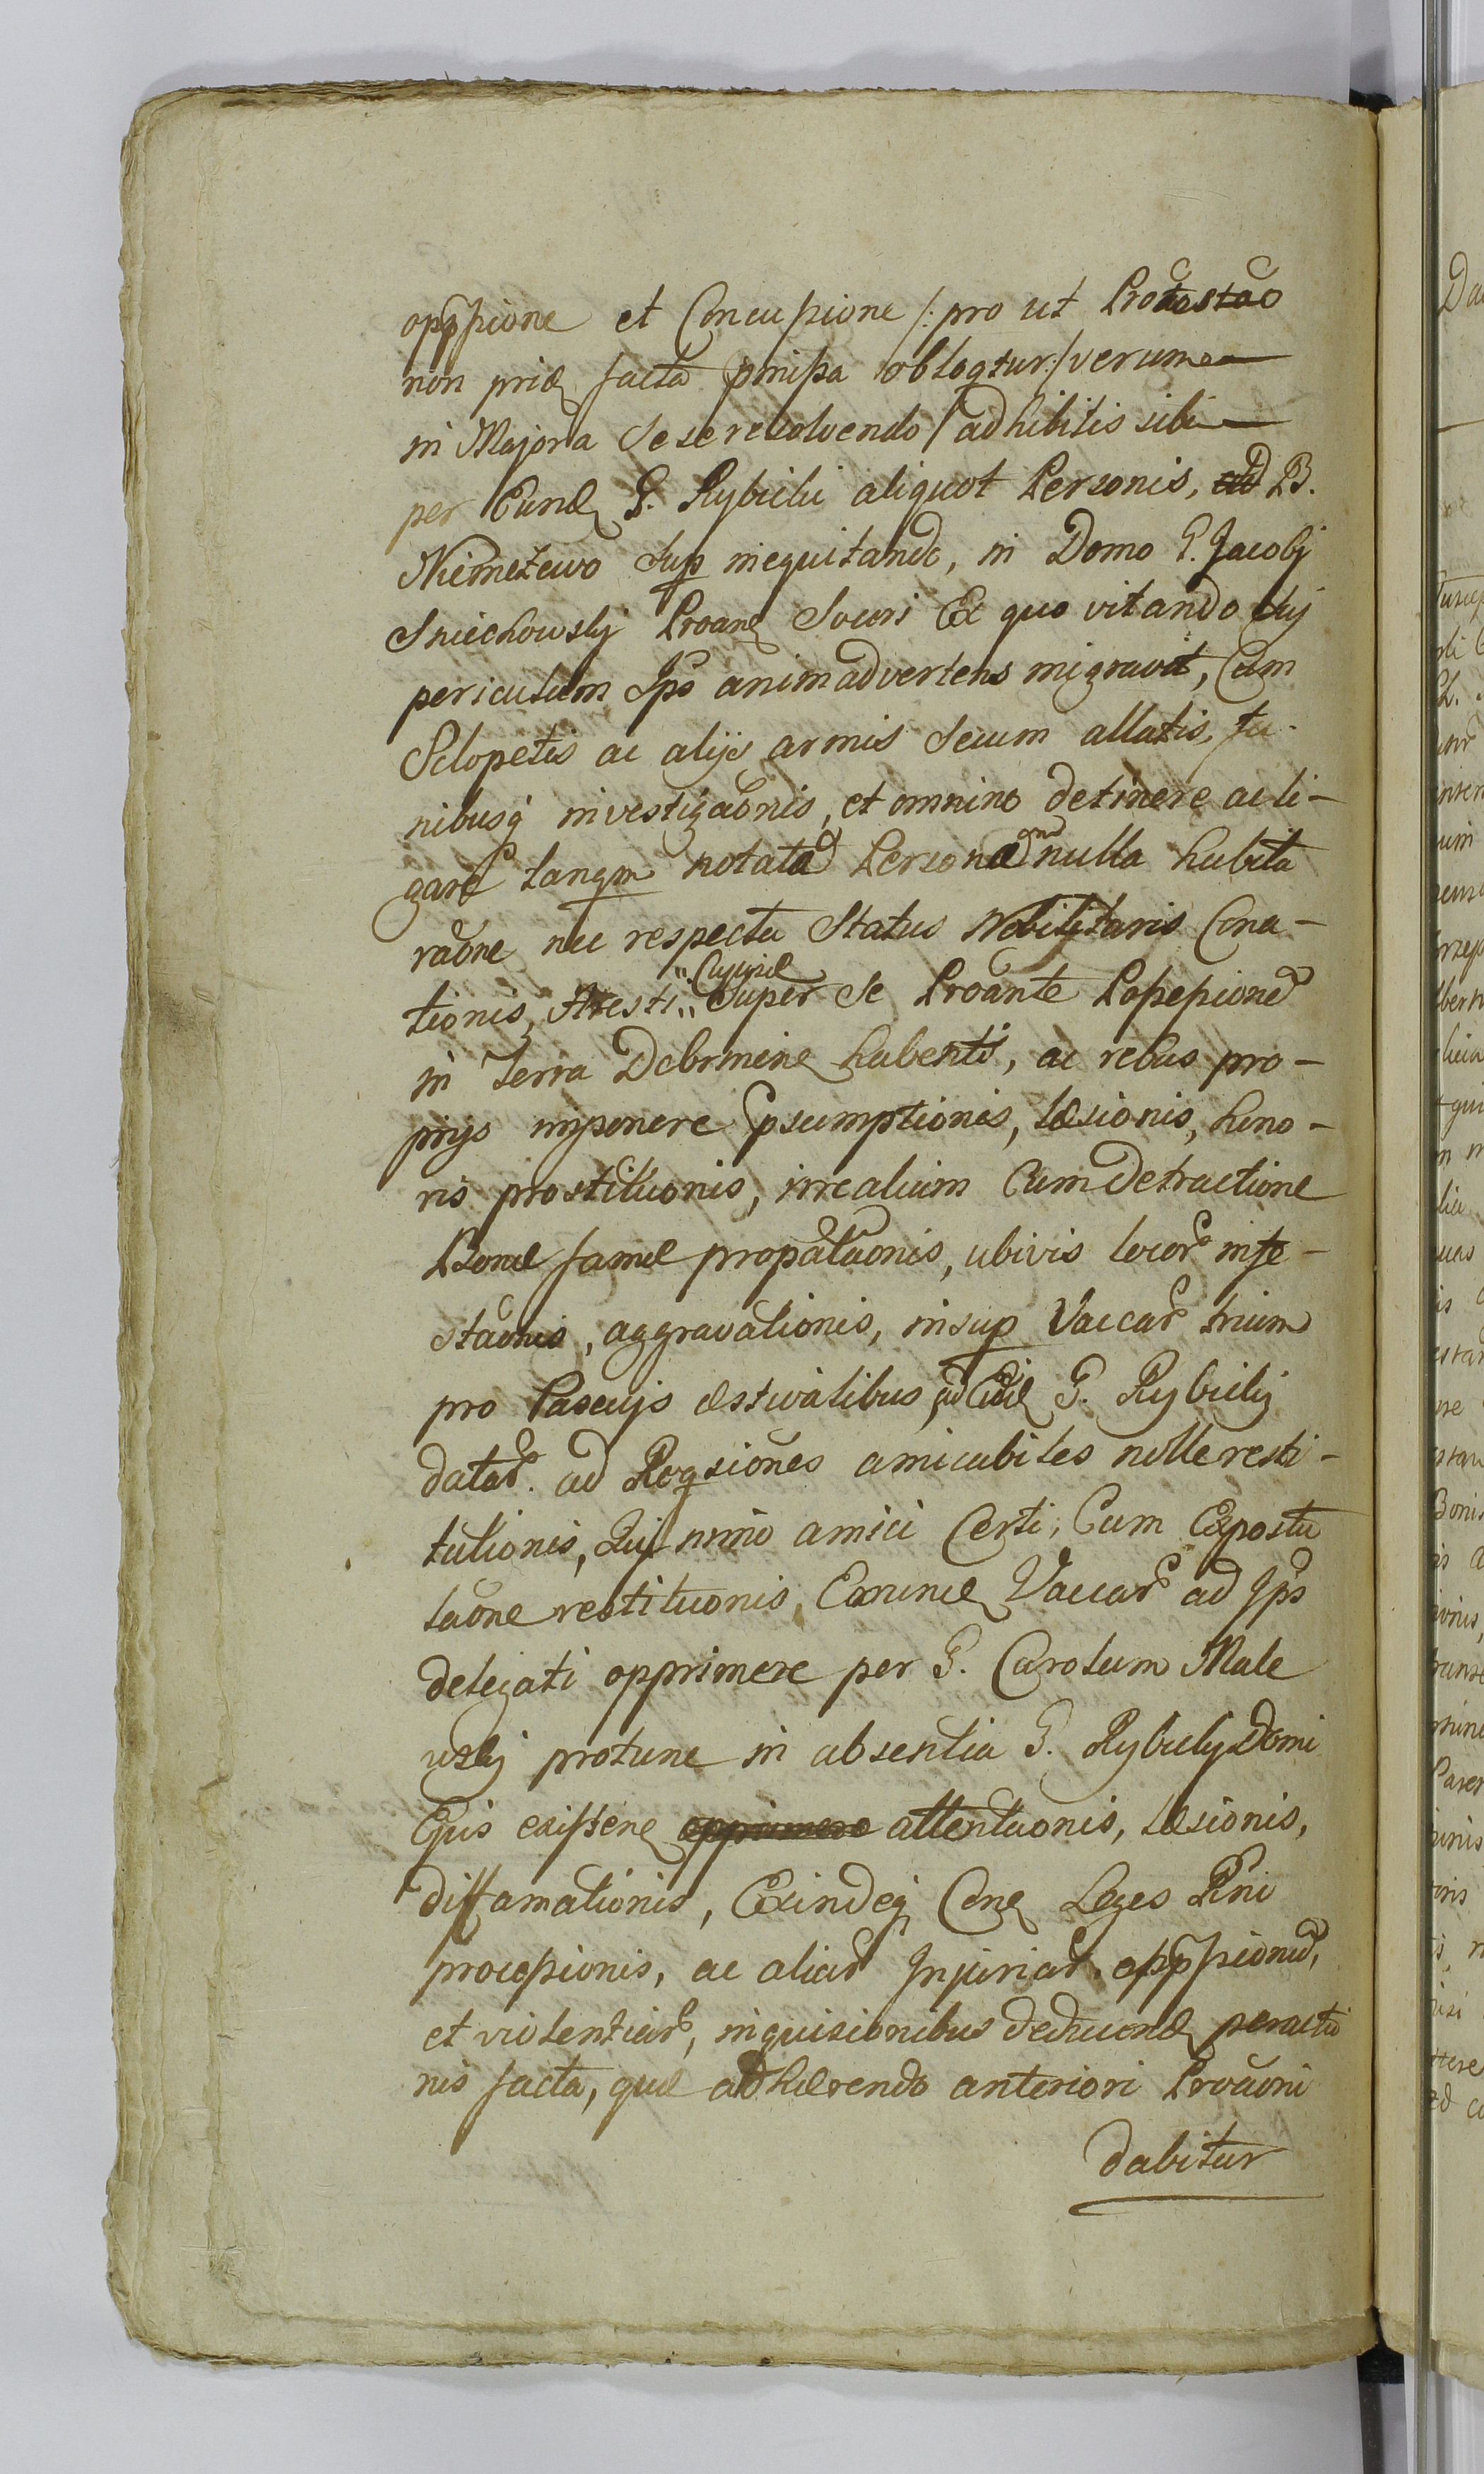 oppssione et Concussione /: pro ut Protestao
non pride facta praemissa obloqtur :/ verum
in Majora se se resolvendo / adhibitis sibi
per Eund G. Rybicki aliquot Personis, ad B.
Niemczewo sup inequitando, in Domo G. Jacobi
Sniechowsky Proane Soceri Ex quo vitando suj
periculum Ips animadvertens migravit, Cum
Sclopetis ac alijs armis secum allatis, fu-
nibusq investigaonis, et omnino detinere ac li-
gare tanqm notata Persona nulla habita
raone nec respectu Status Nobilitaris Cona-
tionis, Aresti " Super se Proante Possessione
in Terra Dobrinen habenti, ac rebus pro-
prijs imponere psumptionis, læsionis, hono-
ris prostituonis, irrealium Cum detractione
Bonæ famæ propalaonis, ubivis locor infe-
staonis, aggravationis, insup Vaccar trium
pro Pascuis æstivalibus, ad G. Rybicky
datar. ad Reqsiones amicabiles nolle resti-
tutionis, Qui nimo amici Certi, Cum Expostu
laone restituonis, Vaccar ad Ips
delegati opprimere per G. Carolum Male
wsky protunc in absentia G. Rybicky Domi
Ejus existen opprimere attentaonis, læsionis,
diffamationis, Exindeq Con Leges Rni
processionis, ac aliar Injuriar. oppssionu,
et violentiar, inquisionibus deducend peractio
nis facta, quæ adhærendo anteriori Proaoni
dabitur